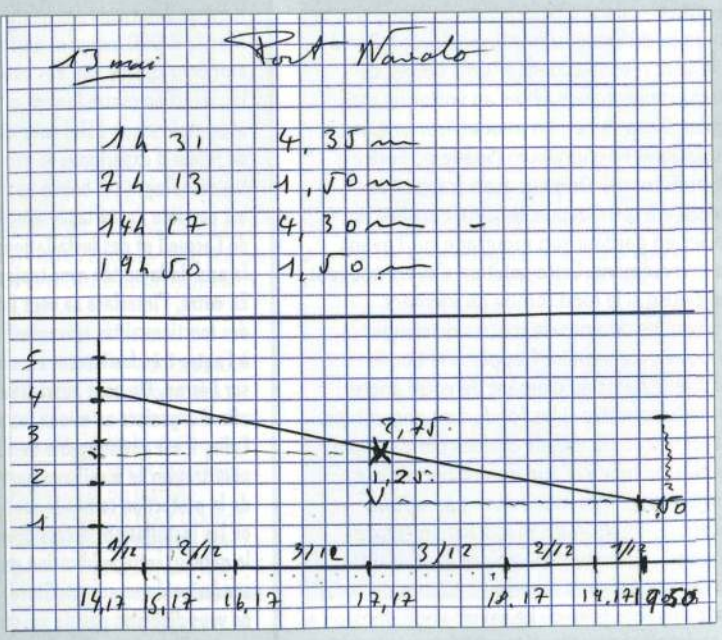 13 mai Port Navalo
1h 31 4,35 m
7h 13 1,50 m
14h 17 4,30 m -
19h 50 1,50 m
5
4
3
2
1
2,75
1,25
1/12 2/12 3/12 3/12 2/12 1/12
14,17 15,17 16,17 17,17 18.17 19.17